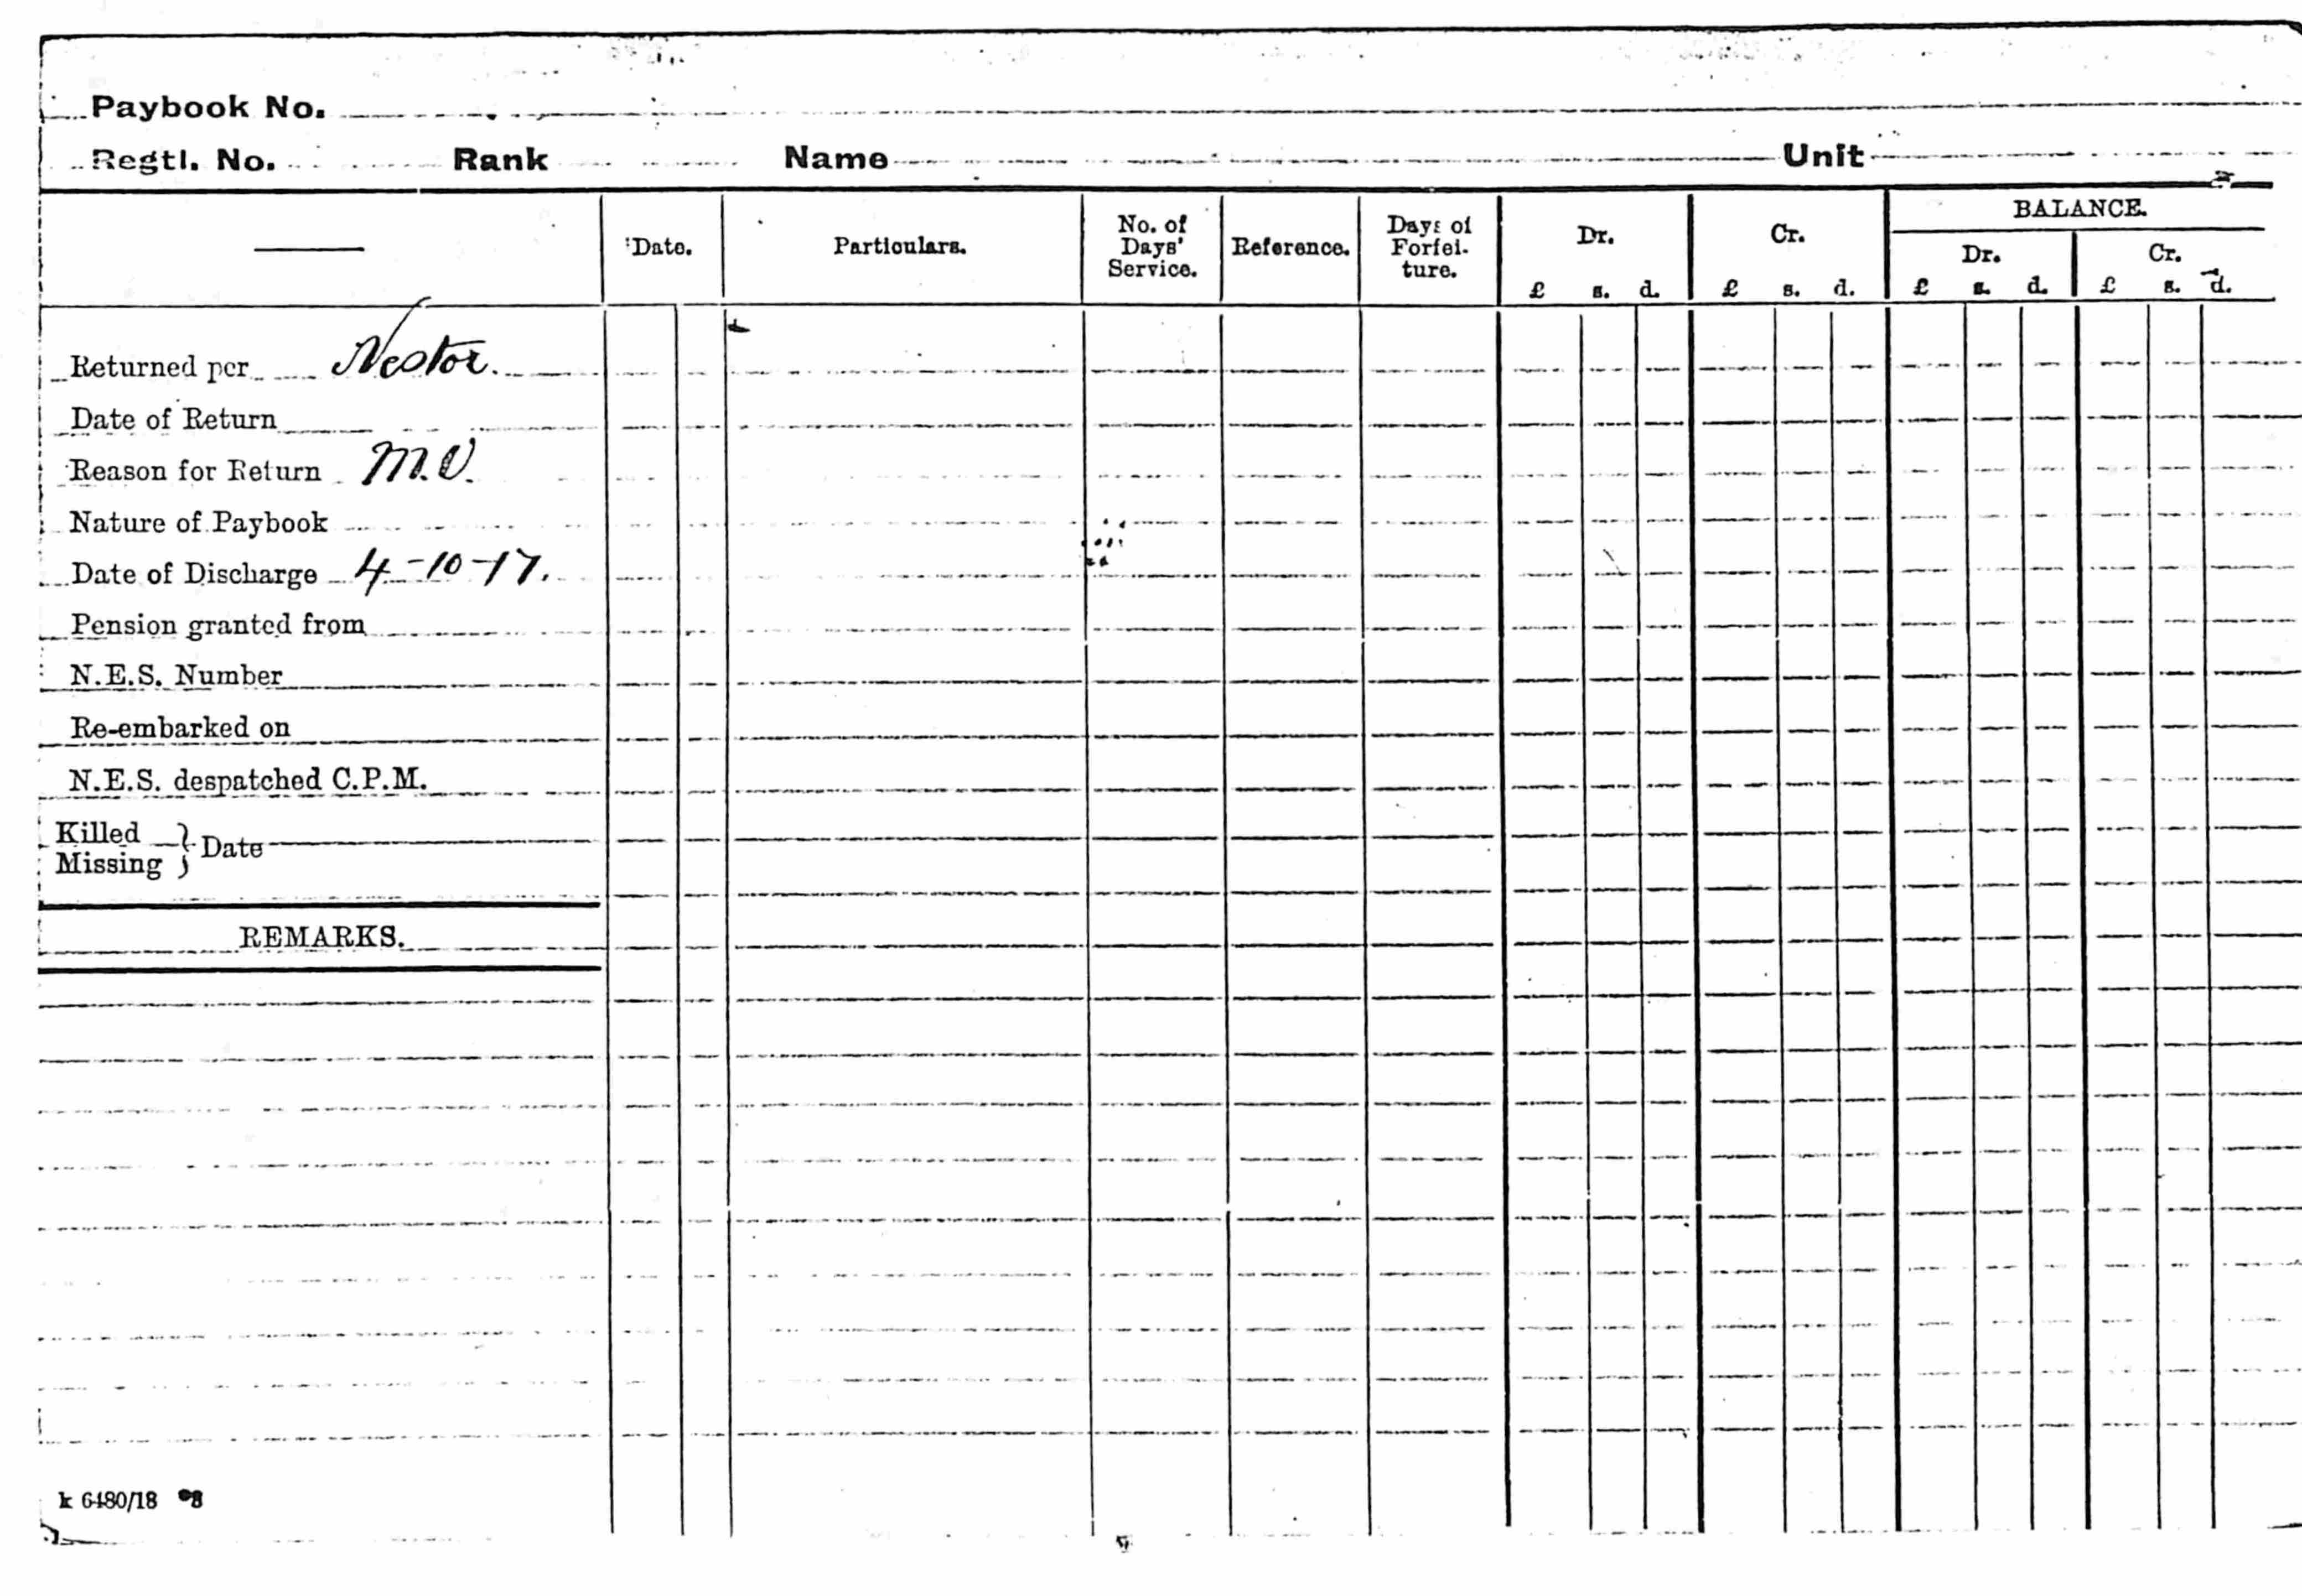 Paybook No.
Regtl. No. Rank Name Unit
Date. Particulars. No. of Days' Service. Reference. Days of Forfei- ture. Dr. Cr. BALANCE.
Dr. Cr.
£ s. d. £ s. d. £ s. d. £ s. d.
Returned per Nestor.
Date of Return
Reason for Return M.U.
Nature of Paybook
Date of Discharge 4-10-17.
Pension granted from
N.E.S. Number
Re-embarked on
N.E.S. despatched C.P.M.
Killed
Missing } Date
REMARKS.
k 6480/18